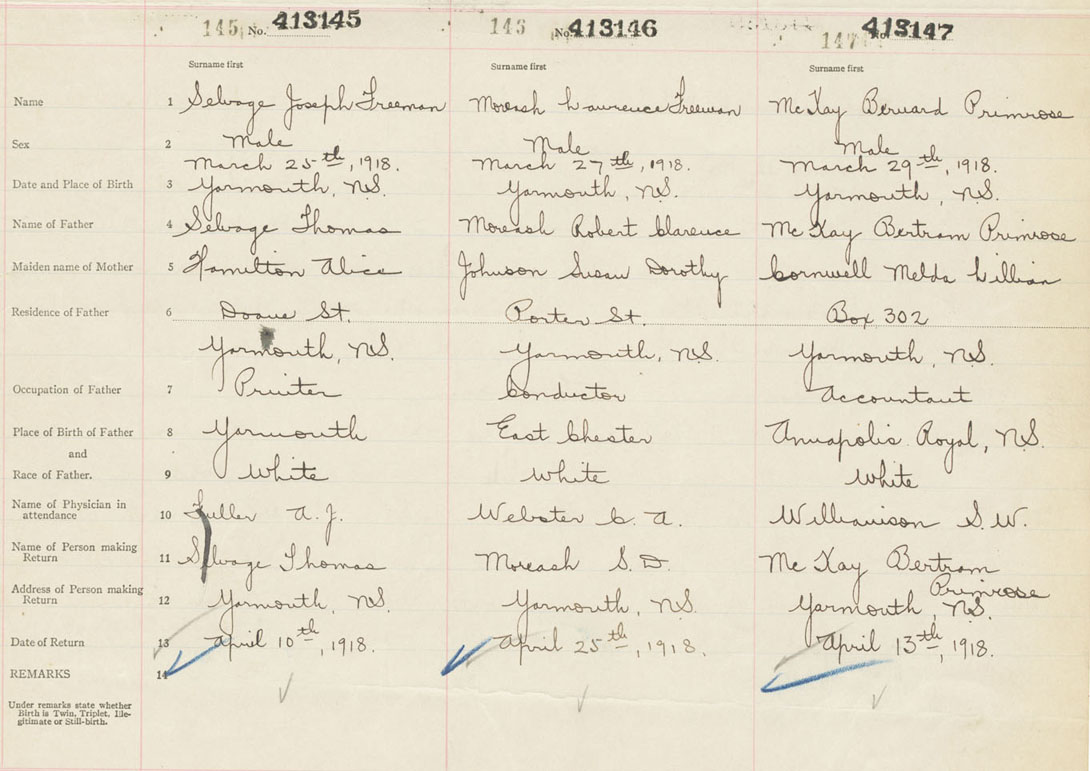 145 No. 413145 146 No. 413146 147 No. 413147
Surname first Surname first Surname first
Name 1 Selvage Joseph Freeman Moreash Lawrence Freeman McKay Bernard Primrose
Sex 2 Male Male Male
March 25th, 1918. March 27th, 1918. March 29th, 1918.
Date and Place of Birth 3 Yarmouth, N.S. Yarmouth, N.S. Yarmouth, N.S.
Name of Father 4 Selvage Thomas Moreash Robert Clarence McKay Bertram Primrose
Maiden name of Mother 5 Hamilton Alice Johnson Susan Dorothy Cornwell Melda Lillian
Residence of Father 6 Doane St. Porter St. Box 302
Yarmouth, N.S. Yarmouth, N.S. Yarmouth, N.S.
Occupation of Father 7 Printer Conductor Accountant
Place of Birth of Father 8 Yarmouth East Chester Annapolis Royal, N.S.
and
Race of Father. 9 White White White
Name of Physician in
attendance 10 Fuller A. J. Webster C. A. Williamson S.W.
Name of Person making
Return 11 Selvage Thomas Moreash S. D. McKay Bertram
Primrose
Address of Person making
Return 12 Yarmouth, N.S. Yarmouth, N.S. Yarmouth, N.S.
Date of Return 13 April 10th, 1918. April 25th, 1918. April 13th, 1918.
REMARKS 14
Under remarks state whether
Birth is Twin, Triplet, Ille-
gitimate or Still-birth.